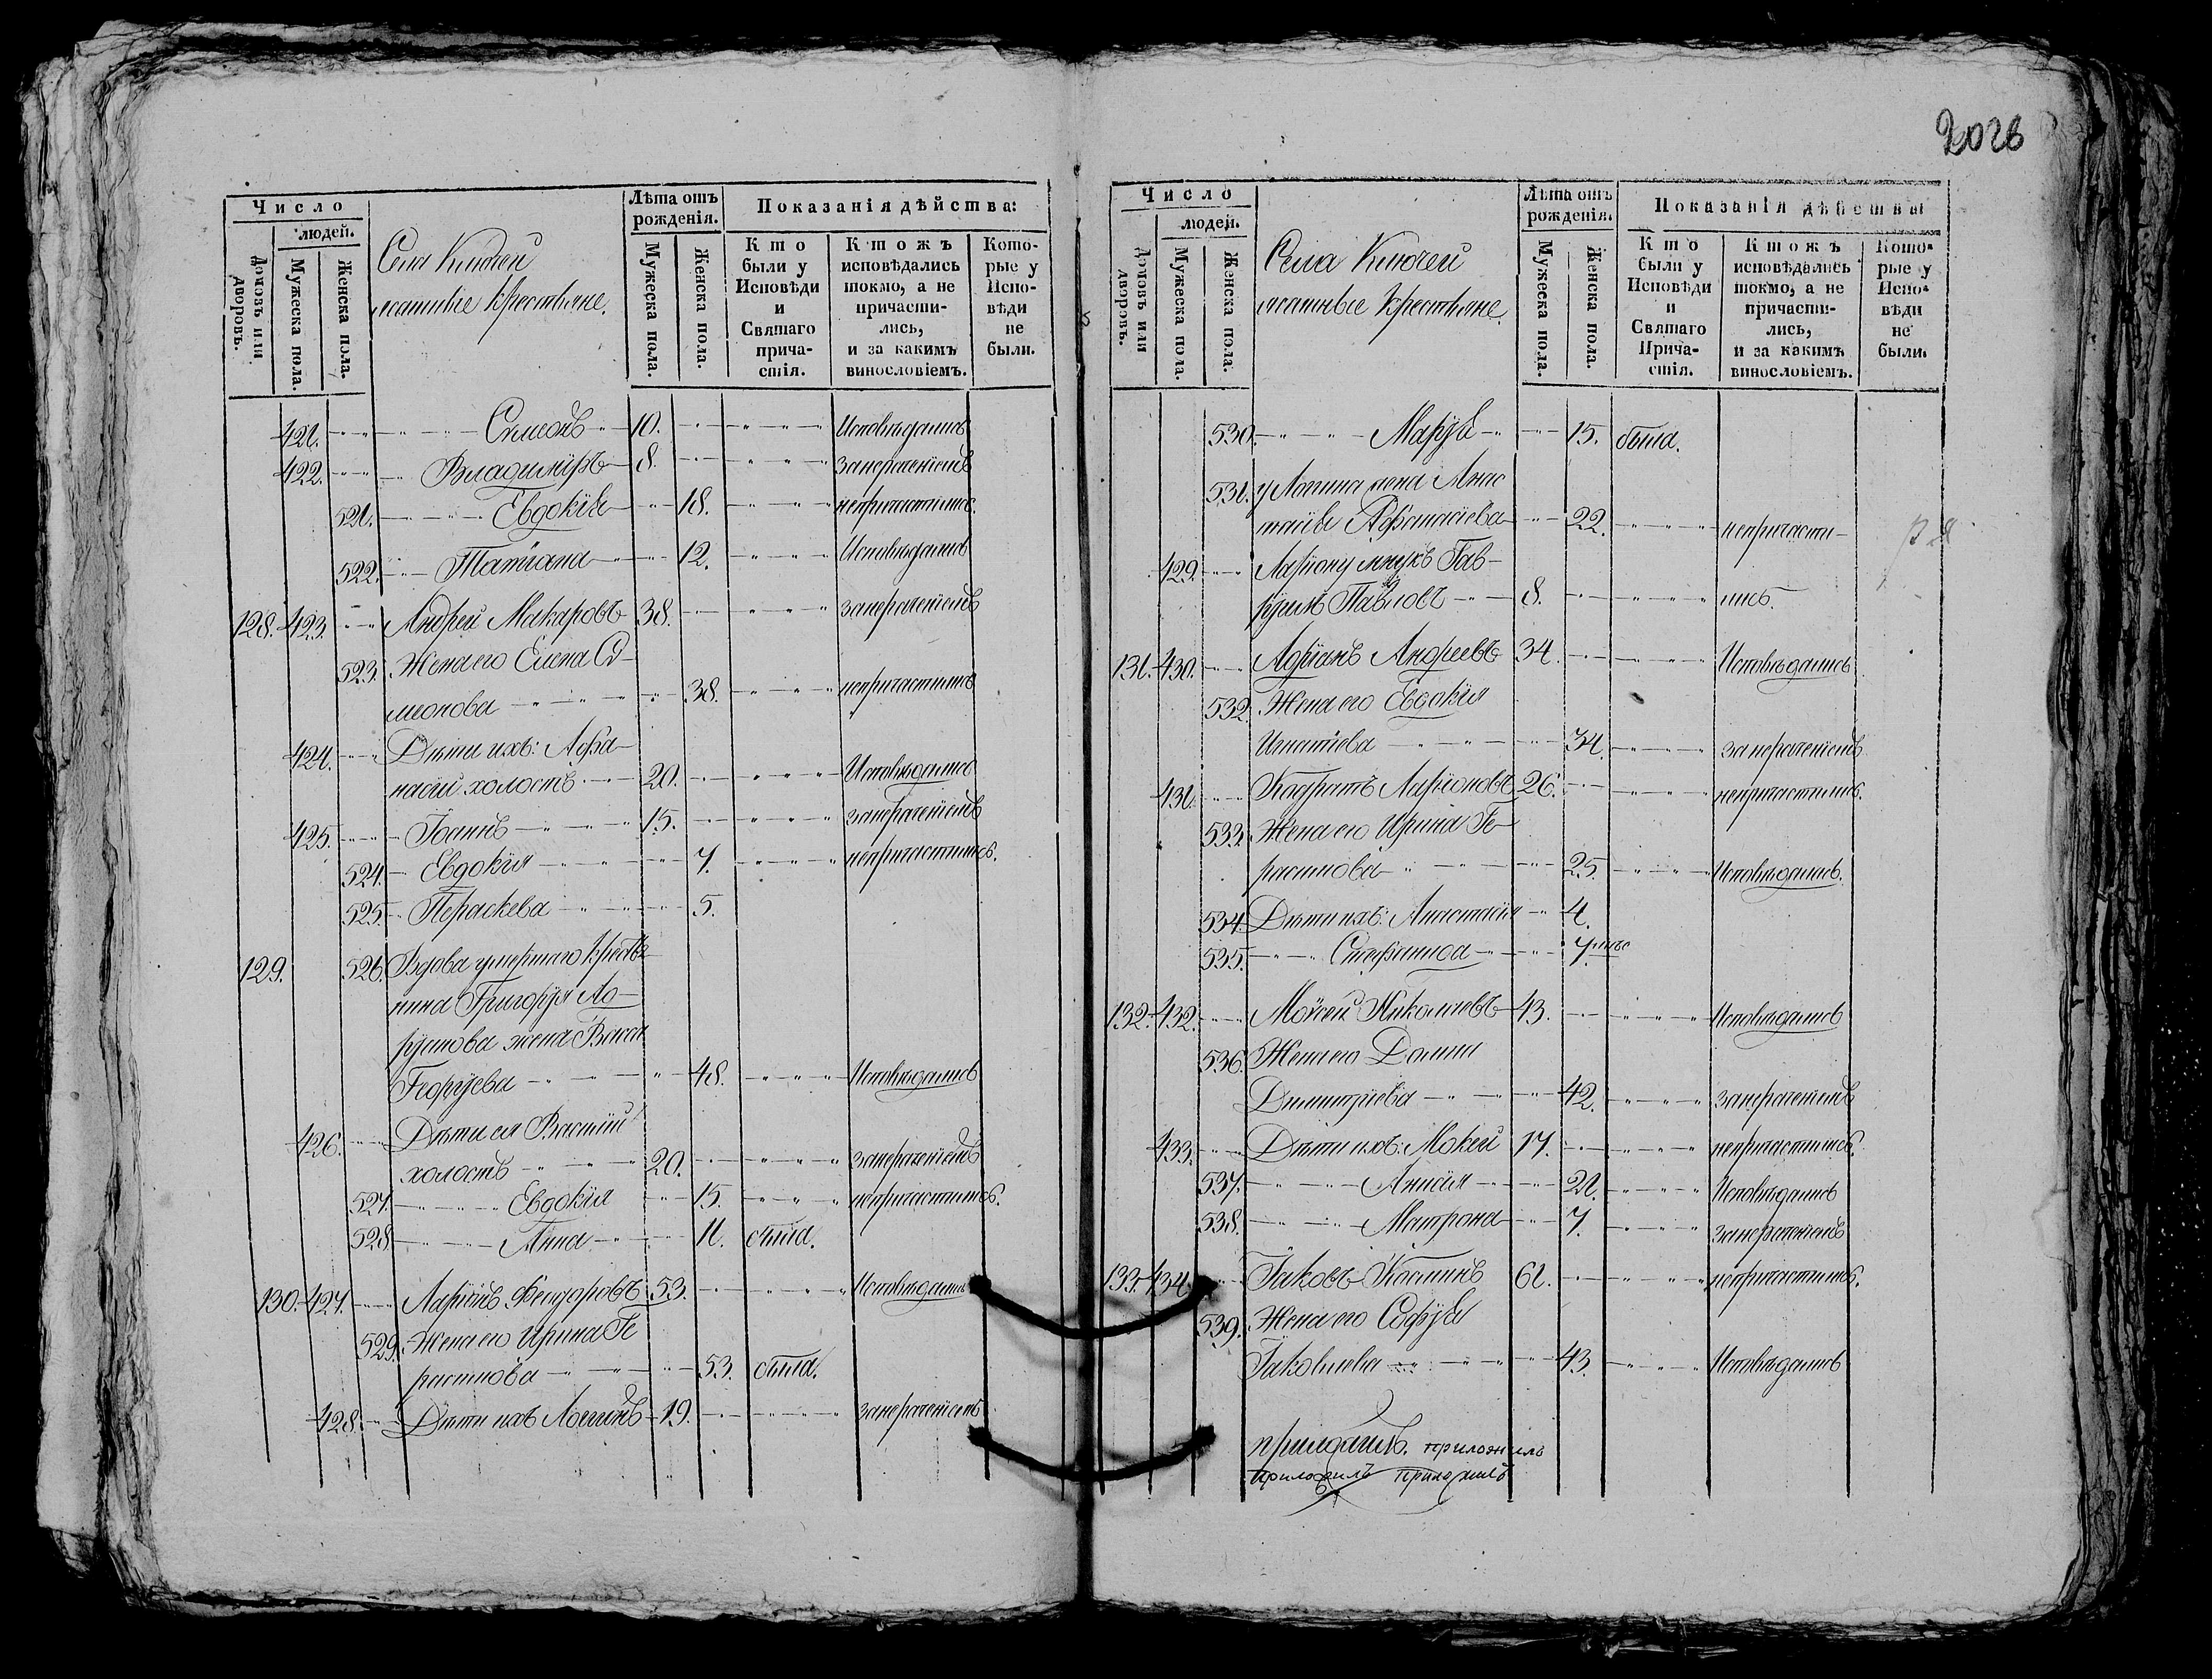 2026
Число
людей.
Домовъ или дворовъ.
Мужеска пола.
Женска пола.
Села Ключей
ясашные Крестьяне.
Лѣта отъ рожденія.
Мужеска пола.
Женска пола.
Показанія дѣйства:
Кто были у Исповѣди и Святаго причастія.
Ктожъ исповѣдались токмо, а не причастились, и за какимъ винословіемъ.
Которые у Исповѣди не были.
421. Симеонъ 10. Исповѣдались
422. Владимиръ 8. занераченіемъ
521. Евдокія 18. непричастились.
522. Татіана 12. Исповѣдались
128. 423. Андрей Макаровъ 38. занераченіемъ
523. Жена его Елена Си-
меонова 38. непричастились
424. Дѣти ихъ: Афа-
насій холостъ 20. Исповѣдались
425. Іоаннъ 15. занераченіемъ
524. Евдокія 7. непричастились.
525. Параскева 5.
129. 526. Вдова умершаго Крестья-
нина Григорія Ла-
ріонова жена Васса
Георгіева 48. Исповѣдались
426. Дѣти ея Василій
холостъ 20. занераченіемъ
527. Евдокія 15. непричастились.
528. Анна 11. была.
130. 427. Ларіонъ Феодоровъ 53. Исповѣдались
529. Жена его Ирина Ге
расимова 53. была.
428. Дѣти ихъ Логинъ 19. занераченіемъ
Число
людей.
Домовъ или дворовъ.
Мужеска пола.
Женска пола.
Села Ключей
ясашные Крестьяне.
Лѣта отъ рожденія.
Мужеска пола.
Женска пола.
Показанія дѣйства
Кто были у Исповѣди и Святаго Причастія.
Ктожъ исповѣдались токмо, а не причастились, и за какимъ винословіемъ.
Которые у Исповѣди не были.
530. Марія 15. была.
531. у Логина жена Анас
тасія Афанасіева 22. непричасти-
429. Ларіону внукъ Гав-
ріилъ Павловъ 8. лись.
131. 430. Адріанъ Андреевъ 34. Исповѣдались
532. Жена его Евдокія
Игнатіева 34. занераченіемъ
431. Кодратъ Ларіоновъ 26. непричастились.
533. Жена его Ирина Ге-
расимова 25. Исповѣдались.
534. Дѣти ихъ: Анастасія 4.
535. Стефанида 7. мѣс
132. 432. Мойсей Николаевъ 43. Исповѣдались
536. Жена его Домна
Димитріева 42. занераченіемъ
433. Дѣти ихъ: Мокей 17. непричастились.
537. Анисія 21. Исповѣдались
538. Матрона 7. занераченіемъ
133. 434. Іаковъ Косминъ 61. непричастились.
539. Жена его Софія
Іаковлева 43. Исповѣдались
приложилъ
приложилъ приложилъ